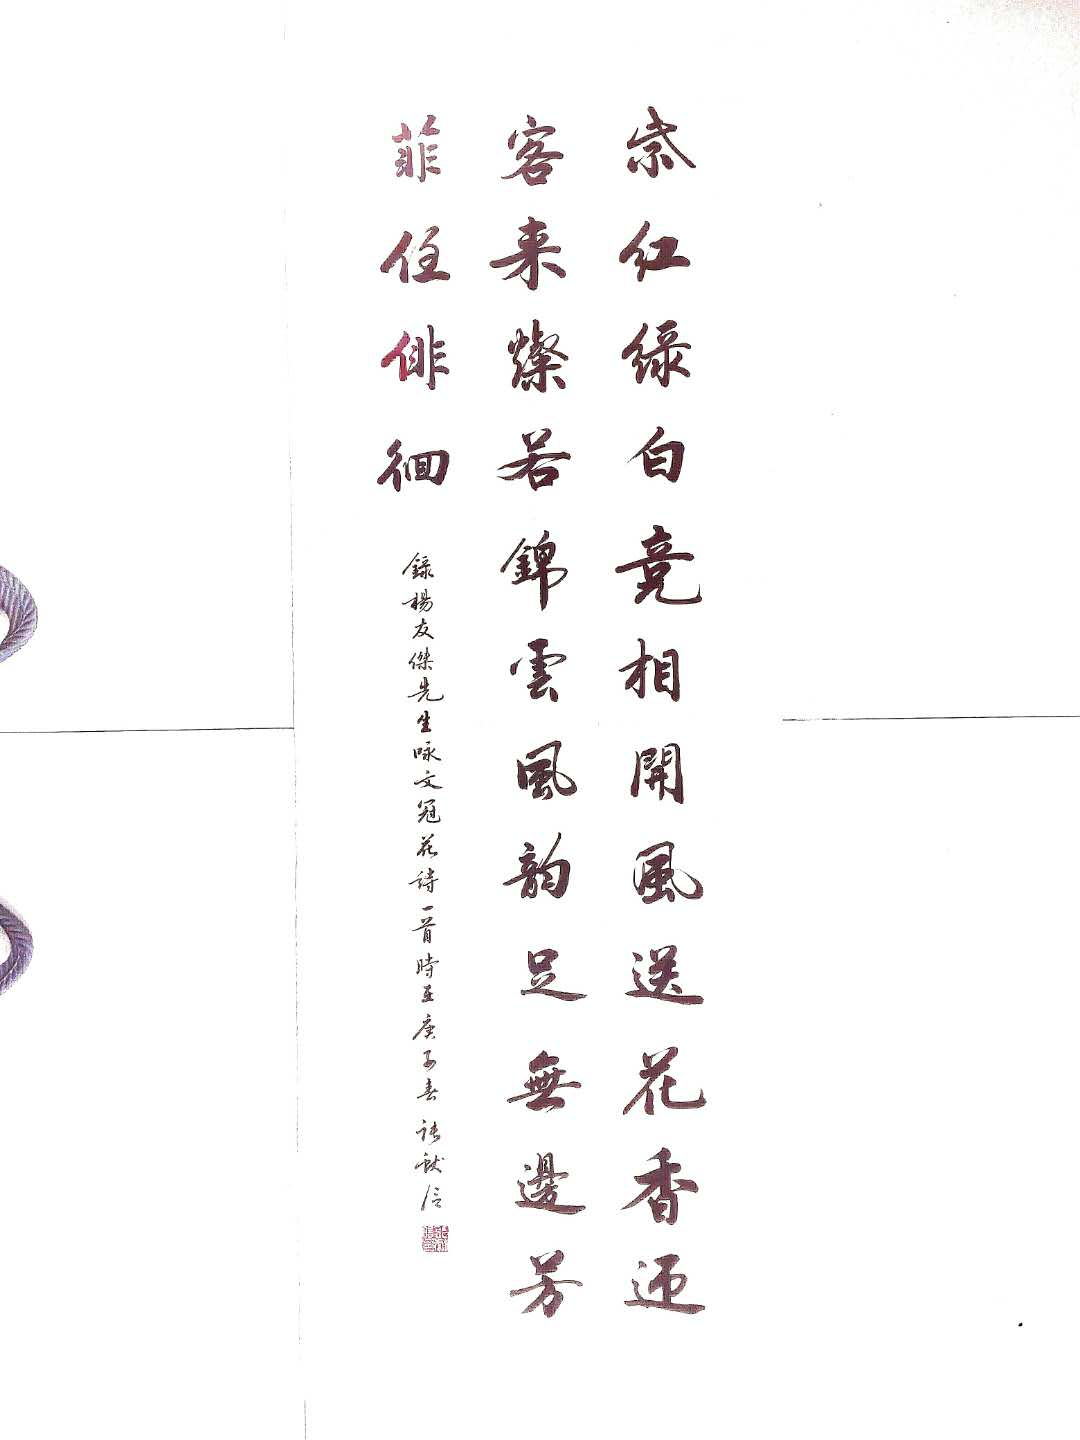 紫红綠白竞相開風送花香迎
客来燦若錦雲風韵足無邊芳
菲任俳徊
錄楊友傑先生咏文冠花詩一首時在庚子春